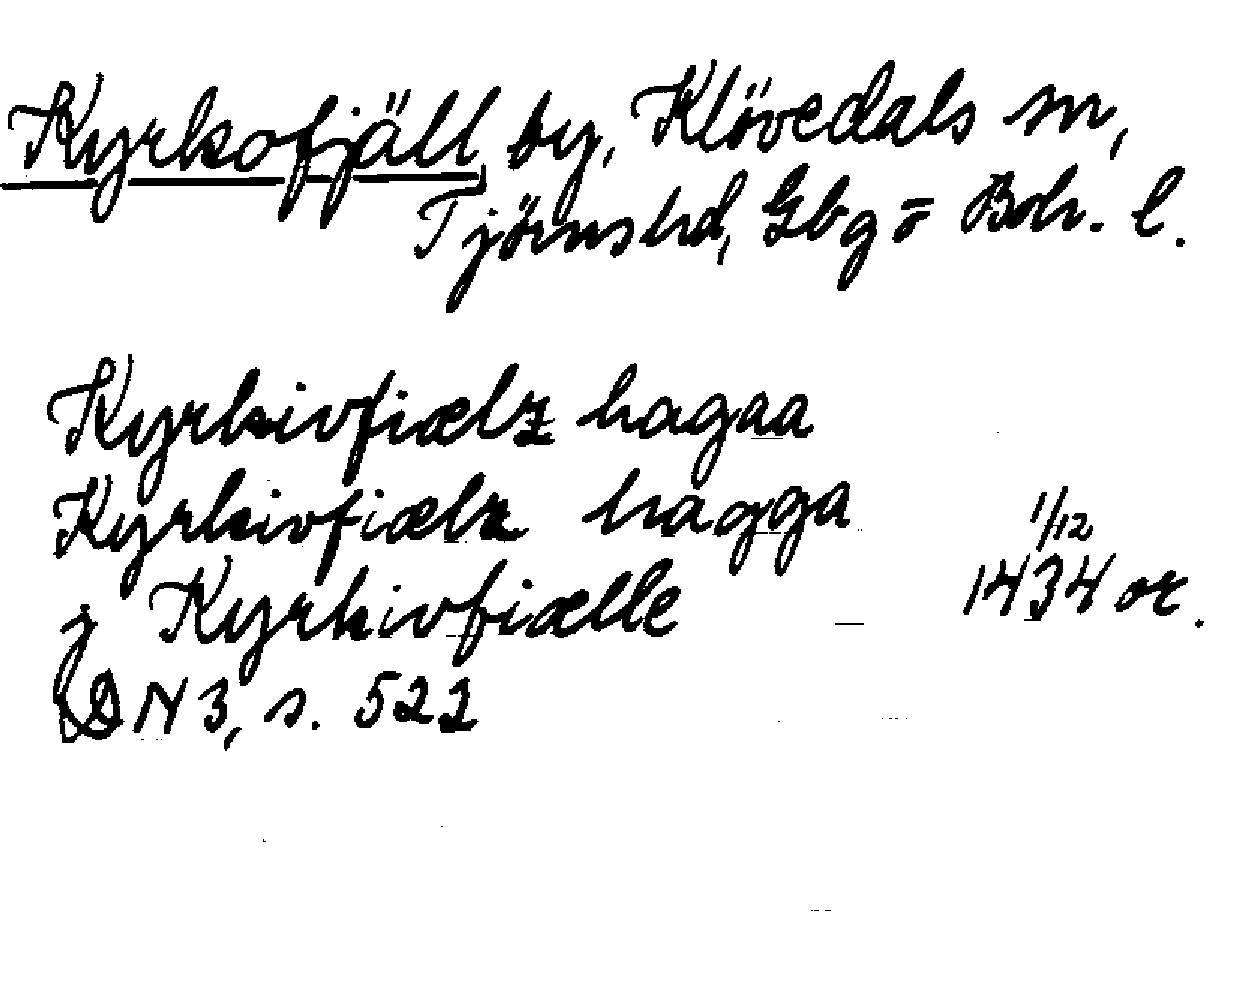 Kyrkofjäll, by, Klövedals sn,
Tjörns hd, Gbg o Boh. l.
Kyrkivfiælz hagaa
Kyrkivfiælz hagga 1/12
j Kyrkivfiælle 1434 or.
DN 3, s. 522